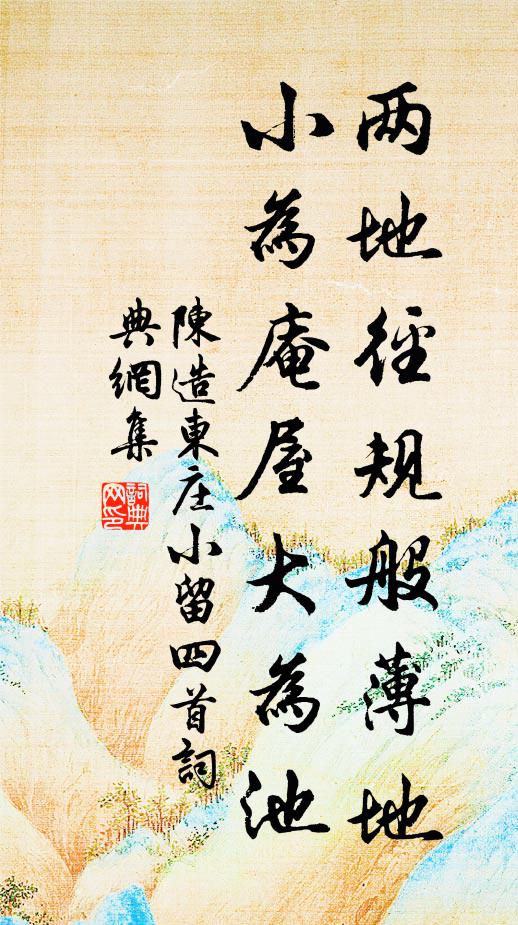 两地径规般薄地
小為庵屋大為池
陳造東庄小留四首詞
典網集
詞典
网印